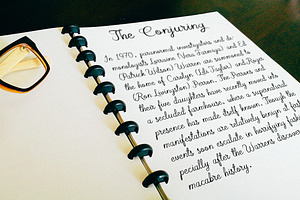 The Conjuring
In 1970, paranormal investigators and de
monologists Lorraine (Vera Farmiga) and Ed
(Patrick Wilson) Warren are summoned to
the home of Carolyn (Lili Taylor) and Roger
(Ron Livingston) Perron. The Perrons and
their five daughters have recently moved into
a secluded farmhouse, where a supernatural
presence has made itself known. Though the
manifestations are relatively benign at first,
events soon escalate in horrifying fashion,
pecially after the Warrens discover
macabre history.